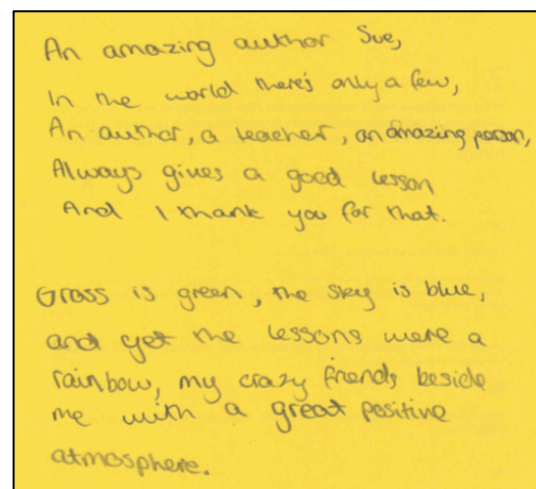 An amazing author Sue,
In the world there's only a few,
An author, a teacher, an amazing person,
Always gives a good lesson
And I thank you for that.
Grass is green, the sky is blue,
and yet the lessons were a
rainbow, my crazy friends beside
me with a great positive
atmosphere.